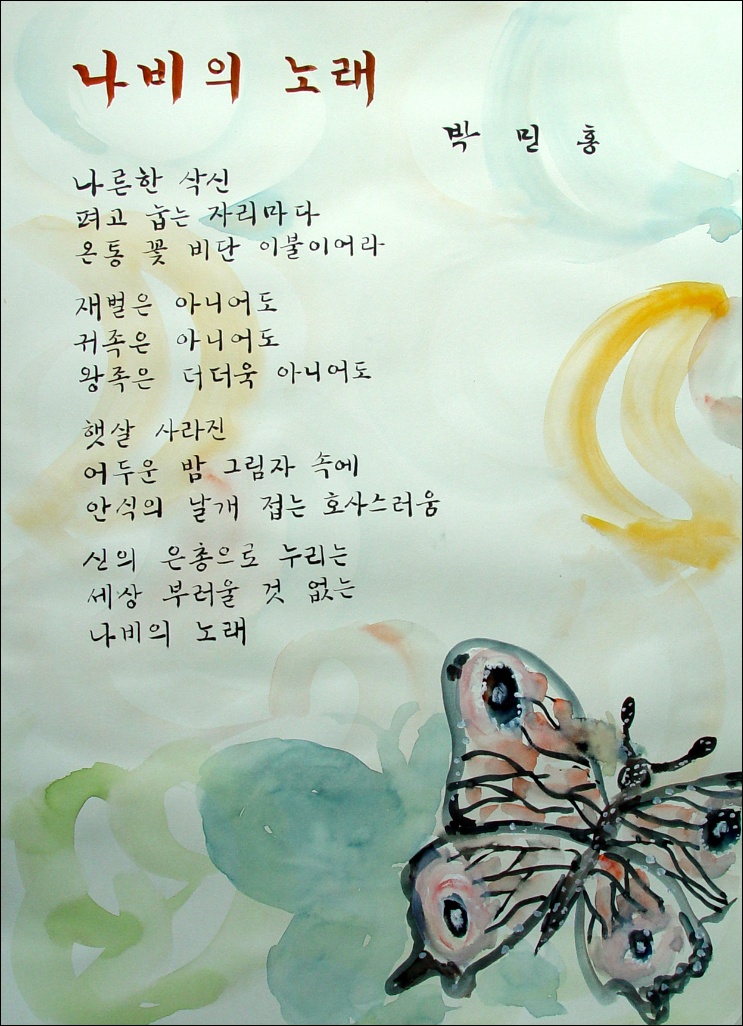 나비의 노래
박 민 홍
나른한 삭신
펴고 눕는 자리마다
온통 꽃 비단 이불이어라
재벌은 아니어도
귀족은 아니어도
왕족은 더더욱 아니어도
햇살 사라진
어두운 밤 그림자 속에
안식의 날개 접는 호사스러움
신의 은총으로 누리는
세상 부러울 것 없는
나비의 노래